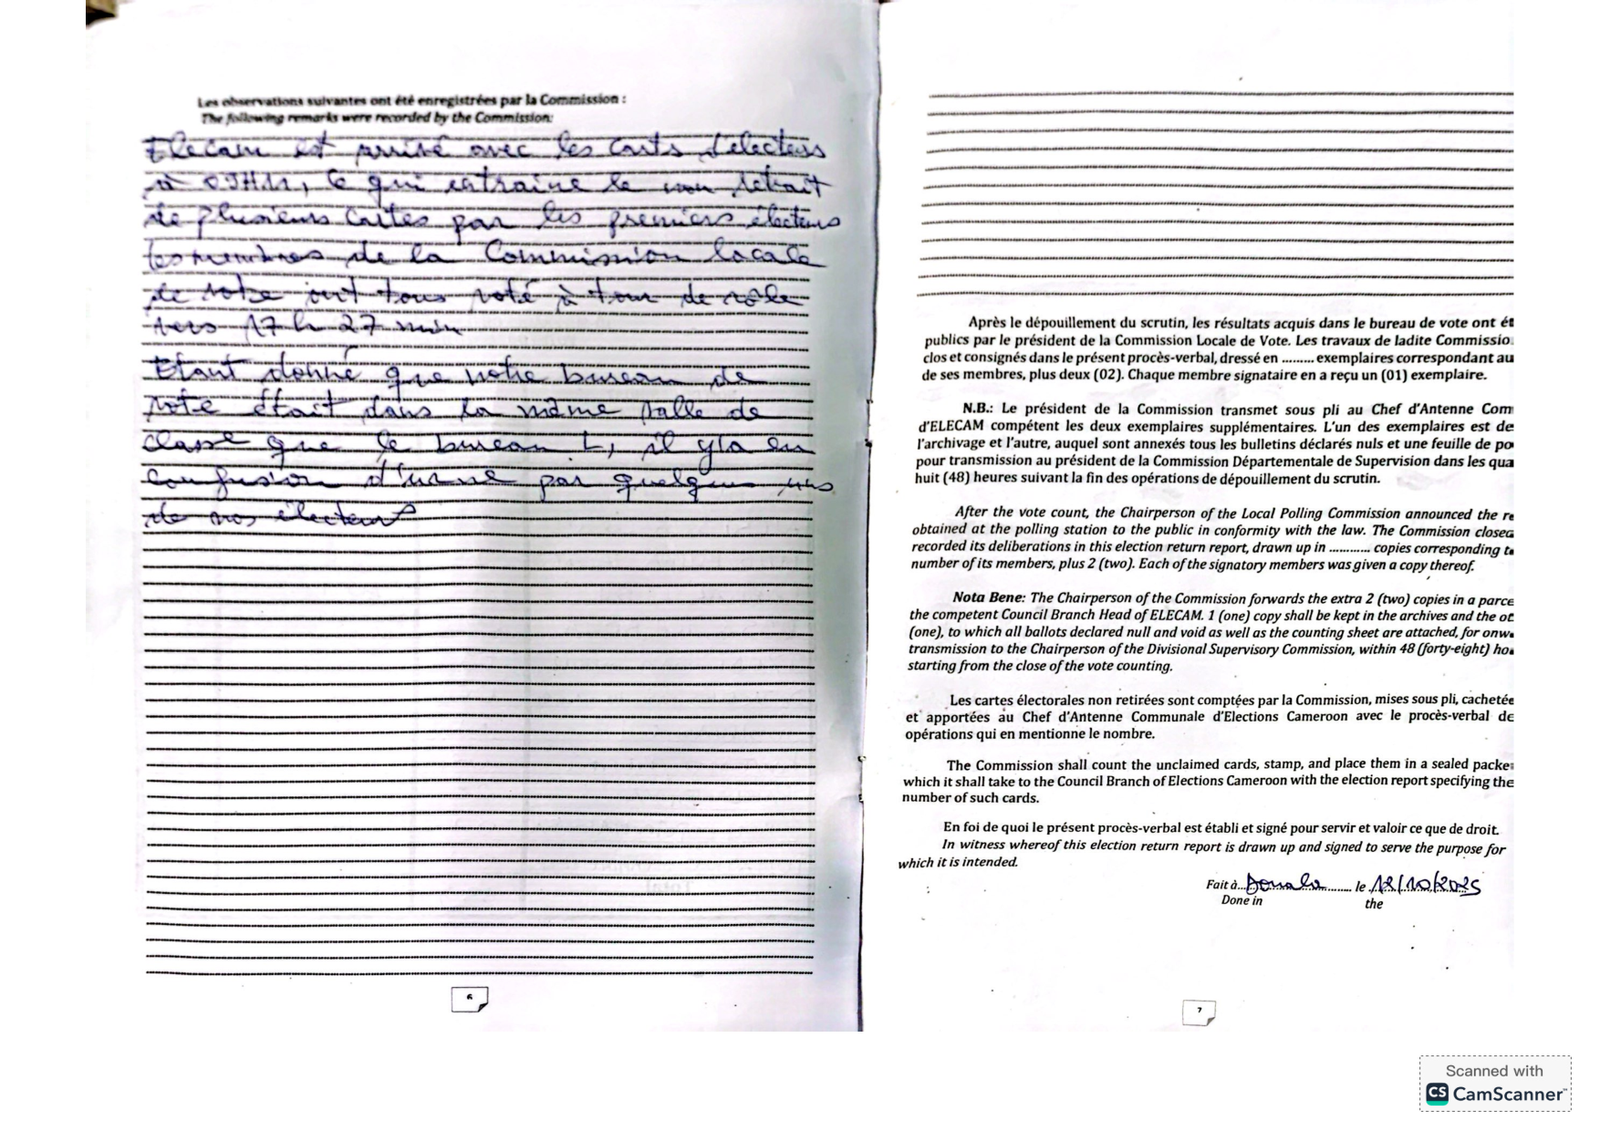 Les observations suivantes ont été enregistrées par la Commission :
The following remarks were recorded by the Commission:
Elecam est arrivé avec les carts d'électeurs
à 09H11, ce qui entraine le non retrait
de plusieurs cartes par les premiers électeurs
les membres de la Commission locale
de vote ont tous voté à tour de rôle
vers 17 h 27 min
Etant donné que notre bureau de
vote était dans la même salle de
classe que le bureau L, il y'a eu
confusion d'urne par quelques uns
de nos électeurs
6
Après le dépouillement du scrutin, les résultats acquis dans le bureau de vote ont ét
publics par le président de la Commission Locale de Vote. Les travaux de ladite Commissio
clos et consignés dans le présent procès-verbal, dressé en ......... exemplaires correspondant au
de ses membres, plus deux (02). Chaque membre signataire en a reçu un (01) exemplaire.
N.B.: Le président de la Commission transmet sous pli au Chef d'Antenne Com
d'ELECAM compétent les deux exemplaires supplémentaires. L'un des exemplaires est de
l'archivage et l'autre, auquel sont annexés tous les bulletins déclarés nuls et une feuille de po
pour transmission au président de la Commission Départementale de Supervision dans les qua
huit (48) heures suivant la fin des opérations de dépouillement du scrutin.
After the vote count, the Chairperson of the Local Polling Commission announced the re
obtained at the polling station to the public in conformity with the law. The Commission closed
recorded its deliberations in this election return report, drawn up in ........... copies corresponding t
number of its members, plus 2 (two). Each of the signatory members was given a copy thereof.
Nota Bene: The Chairperson of the Commission forwards the extra 2 (two) copies in a parce
the competent Council Branch Head of ELECAM. 1 (one) copy shall be kept in the archives and the ot
(one), to which all ballots declared null and void as well as the counting sheet are attached, for onw
transmission to the Chairperson of the Divisional Supervisory Commission, within 48 (forty-eight) ho
starting from the close of the vote counting.
Les cartes électorales non retirées sont comptées par la Commission, mises sous pli, cacheté
et apportées au Chef d'Antenne Communale d'Elections Cameroon avec le procès-verbal de
opérations qui en mentionne le nombre.
The Commission shall count the unclaimed cards, stamp, and place them in a sealed packe
which it shall take to the Council Branch of Elections Cameroon with the election report specifying the
number of such cards.
En foi de quoi le présent procès-verbal est établi et signé pour servir et valoir ce que de droit.
In witness whereof this election return report is drawn up and signed to serve the purpose for
which it is intended.
Fait à Douala ....... le 12/10/2025
Done in the
7
Scanned with
CS CamScanner